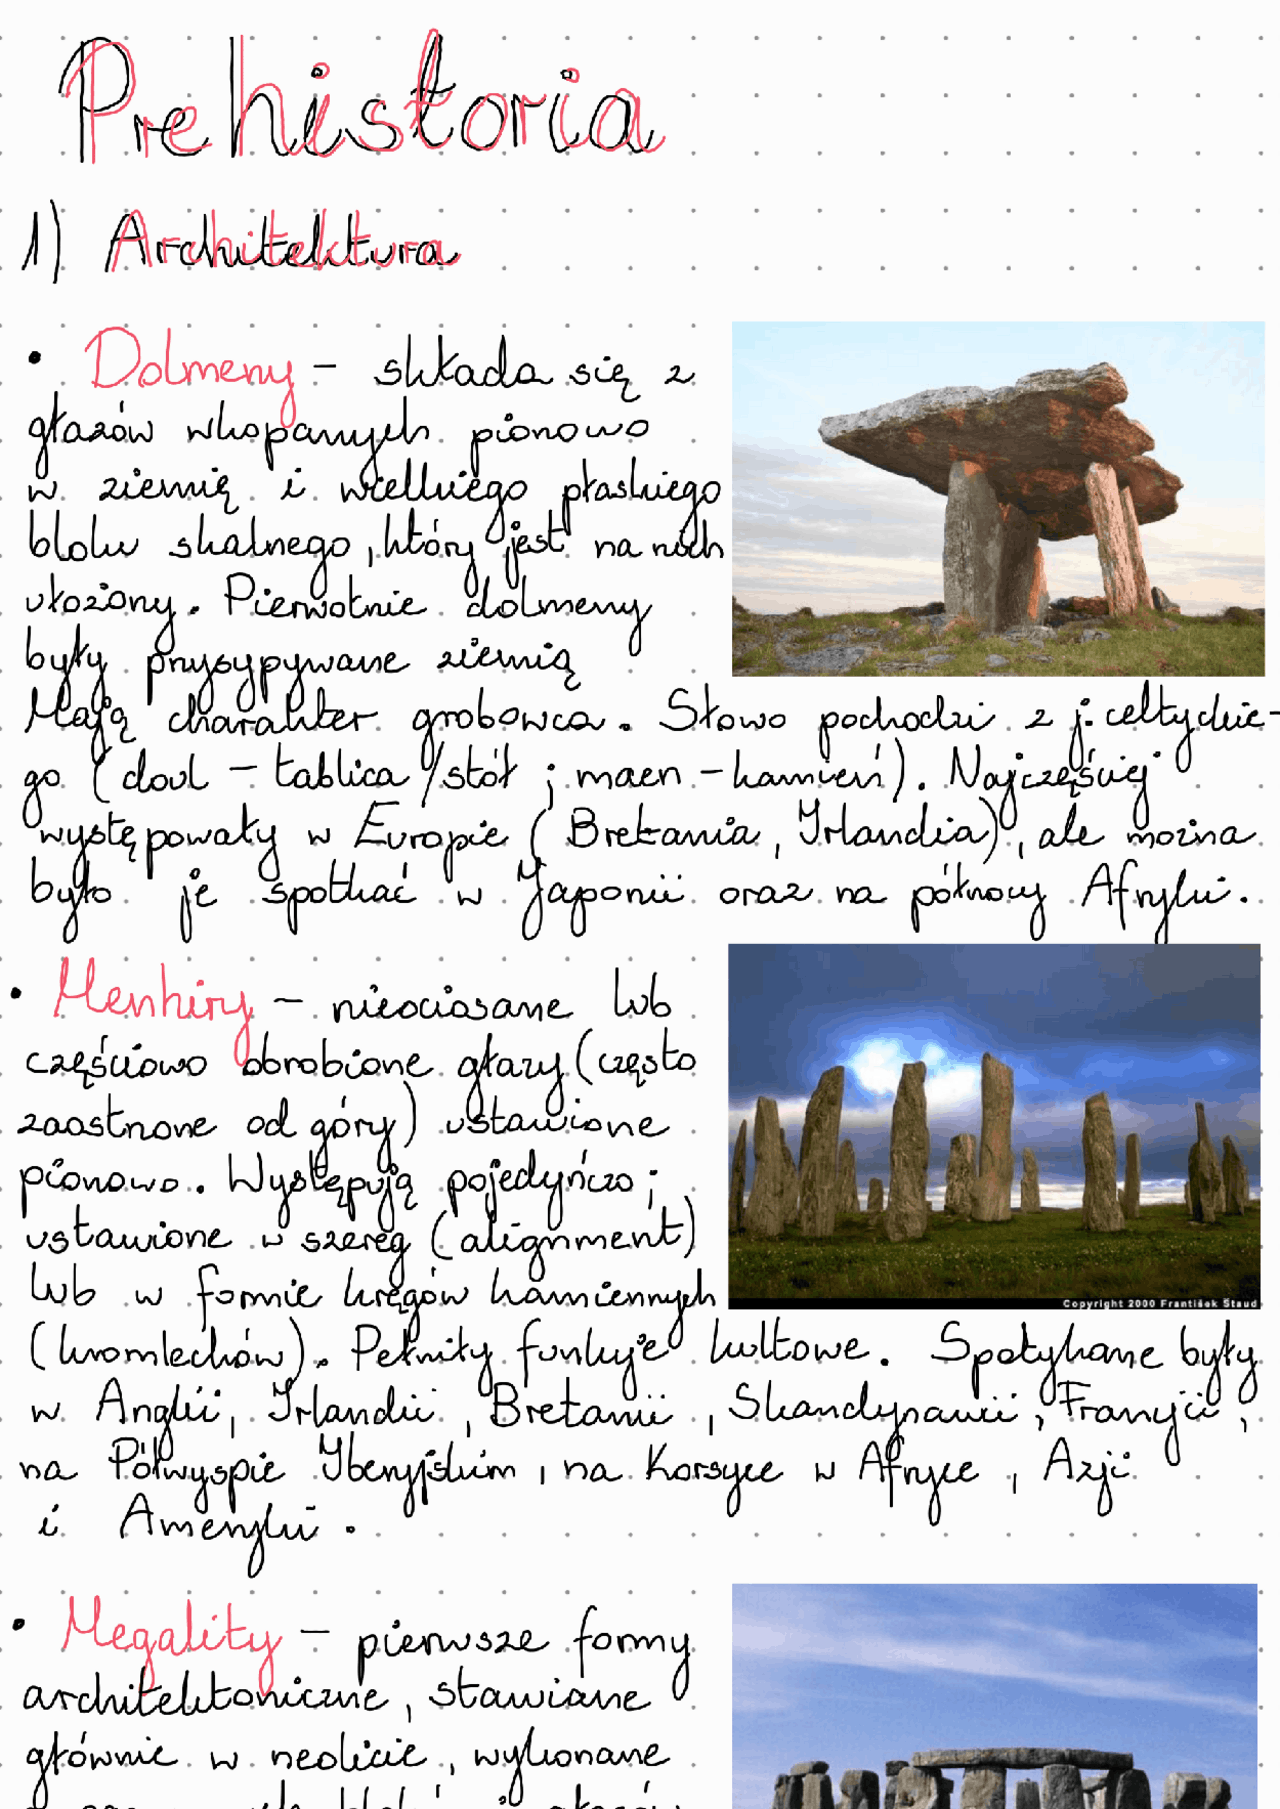 Prehistoria
1) Architektura
• Dolmeny - składa się z
głazów wkopanych pionowo
w ziemię i wielkiego płaskiego
bloku skalnego, który jest na nich
ułożony. Pierwotnie dolmeny
były przysypywane ziemią
Mają charakter grobowca. Słowo pochodzi z j. celtyckie-
go (doul - tablica/stół ; maen - kamień). Najczęściej
występowały w Europie (Bretania, Irlandia), ale można
było je spotkać w Japonii oraz na północy Afryki.
• Menhiry - nieociosane lub
częściowo obrobione głazy (często
zaostrzone od góry) ustawione
pionowo. Występują pojedyńczo;
ustawione w szereg (alignment)
lub w formie kręgów kamiennych
(kromlechów). Pełniły funkcje kultowe. Spotykane były
w Anglii, Irlandii, Bretanii, Skandynawii, Francji,
na Półwyspie Iberyjskim, na Korsyce w Afryce, Azji
i Ameryki.
Copyright 2000 František Staud
• Megality - pierwsze formy
architektoniczne, stawiane
głównie w neolicie, wykonane